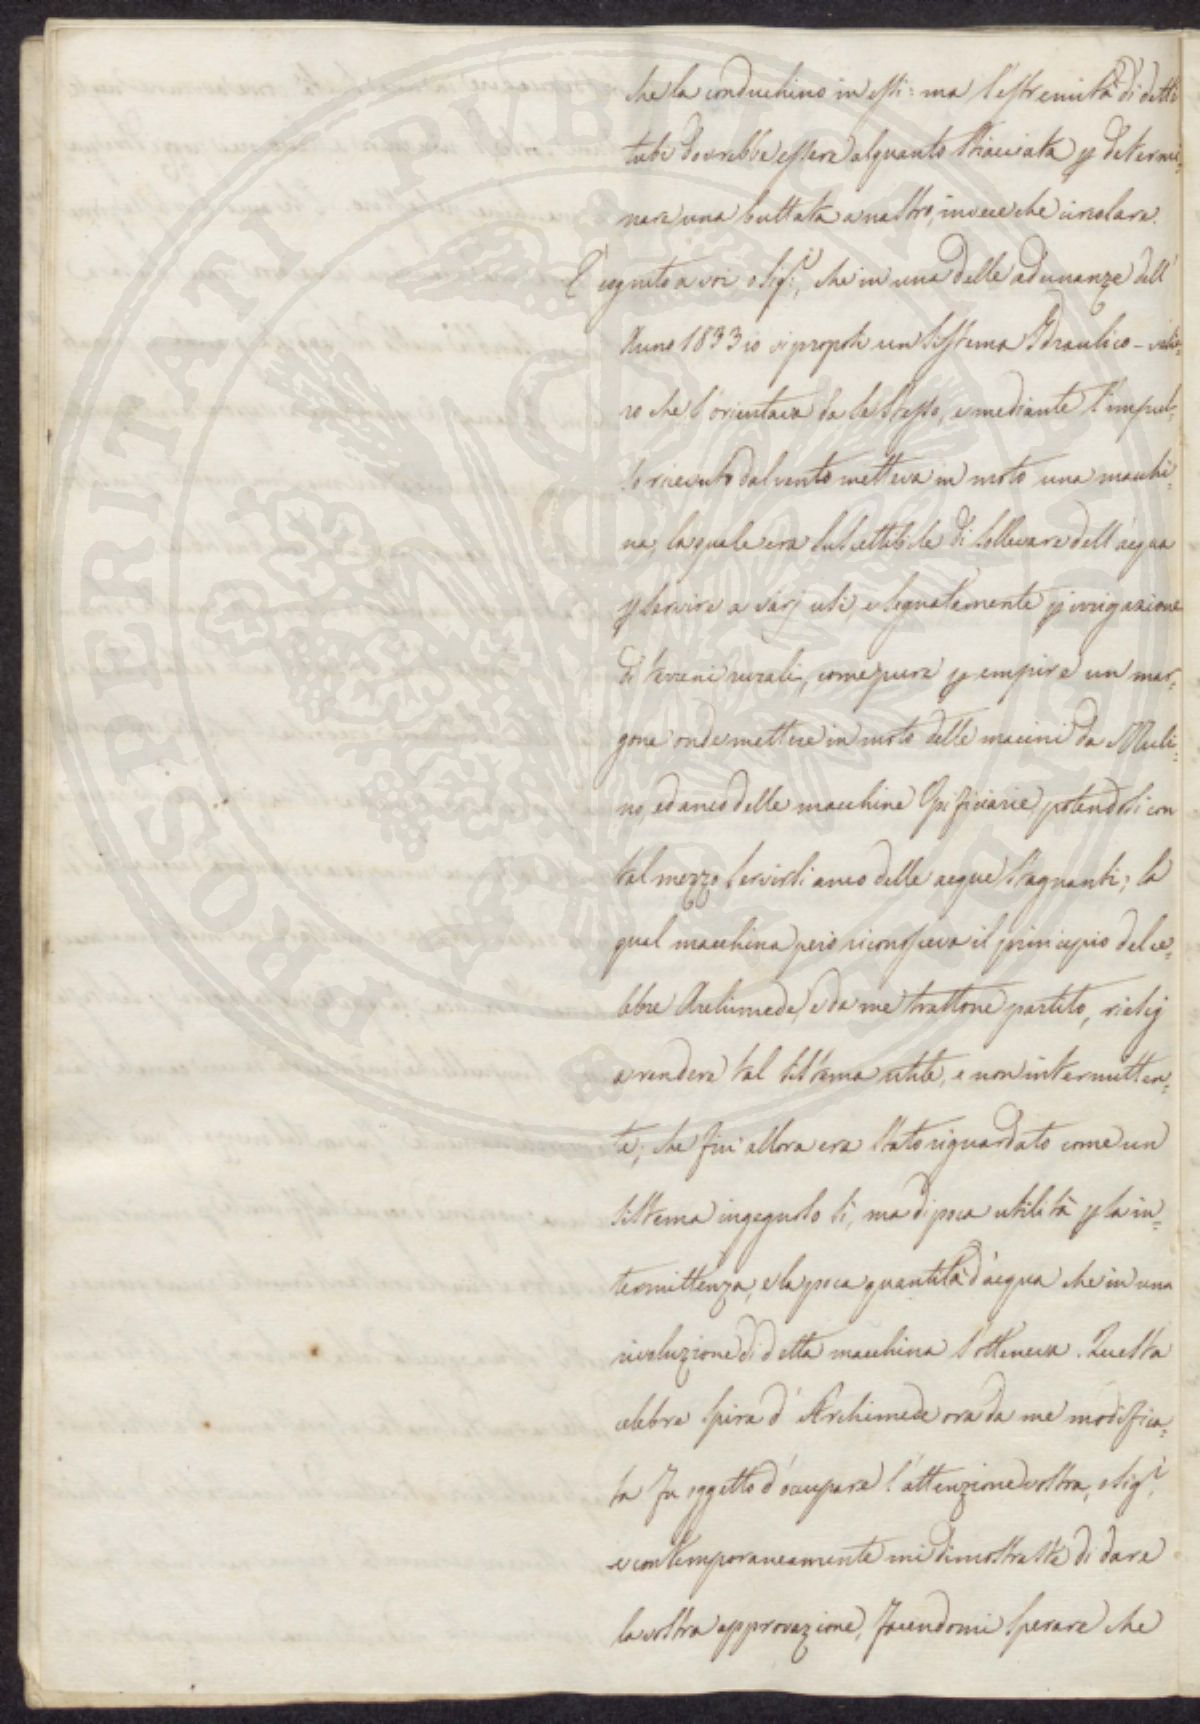 che la conduchino in essi: ma l'estremità di detti
tubi dovrebbe essere alquanto stiacciata p determi=
nare una buttata a nastro, invece che circolare.
E' cognito a voi o Sig.ri, che in una delle adunanze dell'
Anno 1833 io vi proposi un Sistema Idraulico –
ro che s'orientava da se stesso, e mediante l'impul=
so ricevuto dal vento metteva in moto una macchi=
na, la quale era suscettibile di sollevare dell'acqua
p servire a varj usi, e segnatamente p irrigazione
di terreni rurali, come pure p empire un mar=
gone onde mettere in moto delle macini da Muli=
no, ed anco delle macchine Opificiarie, potendosi con
tal mezzo servirsi anco delle acque stagnanti; la
qual macchina però riconosceva il principio del ce=
lebre Archimede, e da me trattone partito, riescj
a rendere tal sistema utile, e non intermitten=
te, che fin' allora era stato riguardato come un
sistema ingegnoso sì, ma di poca utilità p la in=
termittenza, e la poca quantità d'acqua che in una
rivoluzione di detta macchina s'otteneva. Questa
celebre spira d'Archimede ora da me modifica=
ta fu oggetto d'occupare l'attenzione vostra, o Sig.ri,
e contemporaneamente mi dimostraste di dare
la vostra approvazione, facendomi sperare che
PROSPERITATI PUBLICAE AUGENDAE